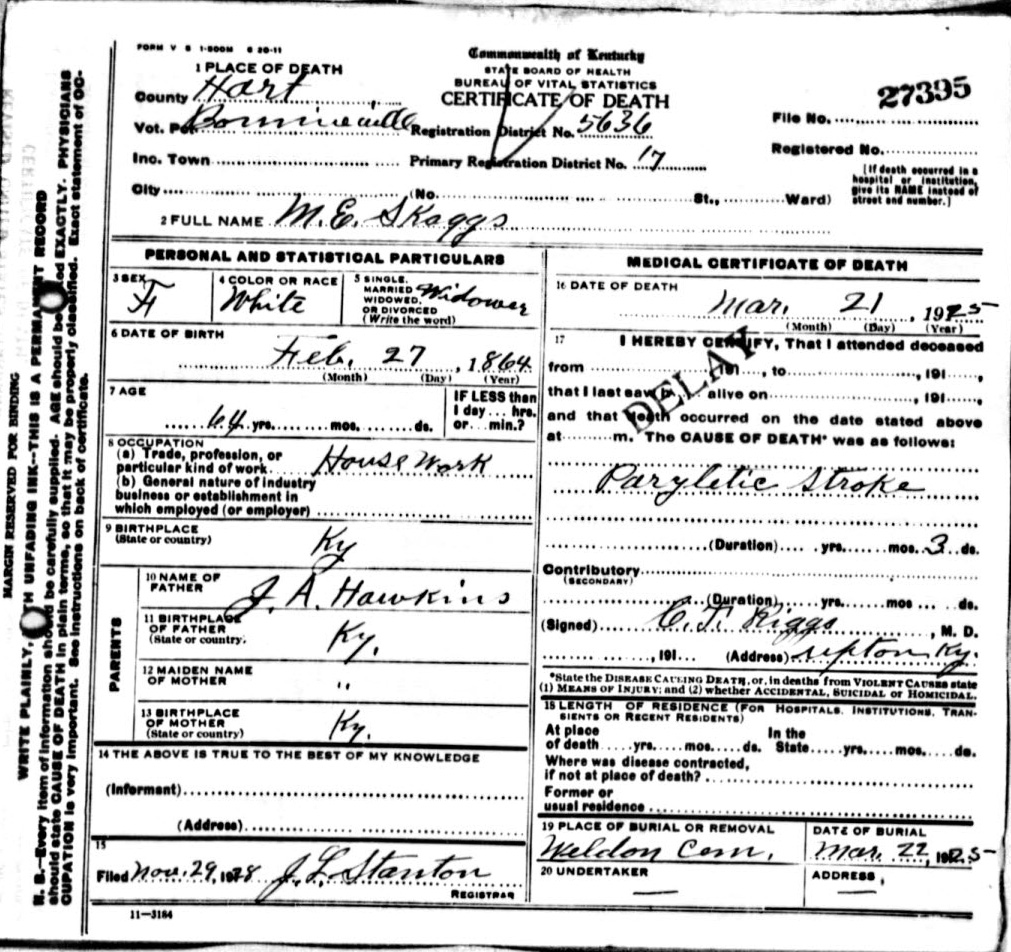 FORM V S 1-500M 6 20-11
Commonwealth of Kentucky
STATE BOARD OF HEALTH
BUREAU OF VITAL STATISTICS
CERTIFICATE OF DEATH
27395
1 PLACE OF DEATH
County Hart
Vot. Pct. Bonnieville Registration District No. 5636
File No.
Inc. Town Primary Registration District No. 17
Registered No.
City (No. St., Ward)
[If death occurred in a hospital or institution, give its NAME instead of street and number.]
2 FULL NAME M.E. Skaggs
PERSONAL AND STATISTICAL PARTICULARS
3 SEX F
4 COLOR OR RACE White
5 SINGLE, MARRIED WIDOWED, OR DIVORCED (Write the word) Widower
6 DATE OF BIRTH
Feb. 27, 1864
(Month) (Day) (Year)
7 AGE
64 yrs. mos. ds.
IF LESS than 1 day... hrs. or... min.?
8 OCCUPATION
(a) Trade, profession, or particular kind of work House Work
(b) General nature of industry business or establishment in which employed (or employer)
9 BIRTHPLACE
(State or country) Ky
PARENTS
10 NAME OF FATHER J. A. Hawkins
11 BIRTHPLACE OF FATHER (State or country. Ky.
12 MAIDEN NAME OF MOTHER "
13 BIRTHPLACE OF MOTHER (State or country) Ky.
14 THE ABOVE IS TRUE TO THE BEST OF MY KNOWLEDGE
(Informant)
(Address)
15
Filed Nov. 29, 1928 J. L. Stanton
REGISTRAR
11—3184
MEDICAL CERTIFICATE OF DEATH
16 DATE OF DEATH
Mar. 21, 1925
(Month) (Day) (Year)
17 I HEREBY CERTIFY, That I attended deceased
from 191 , to , 191 ,
that I last saw h alive on , 191 ,
and that death occurred on the date stated above
at m. The CAUSE OF DEATH* was as follows:
DELAY
Paryletic Stroke
(Duration) yrs. mos. 3 ds.
Contributory
(SECONDARY)
(Duration) yrs. mos ds.
(Signed) C. T. Riggs, M. D.
, 191 (Address) Upton Ky.
*State the DISEASE CAUSING DEATH, or, in deaths from VIOLENT CAUSES state
(1) MEANS OF INJURY; and (2) whether ACCIDENTAL, SUICIDAL or HOMICIDAL.
18 LENGTH OF RESIDENCE (FOR HOSPITALS, INSTITUTIONS, TRANSIENTS OR RECENT RESIDENTS)
At place of death yrs. mos. ds. In the State yrs. mos. ds.
Where was disease contracted,
if not at place of death?
Former or
usual residence
19 PLACE OF BURIAL OR REMOVAL
Weldon Cem.
DATE OF BURIAL
Mar. 22, 1925
20 UNDERTAKER
—
ADDRESS
—
MARGIN RESERVED FOR BINDING
WRITE PLAINLY, WITH UNFADING INK--THIS IS A PERMANENT RECORD
N. B.—Every item of information should be carefully supplied. AGE should be stated EXACTLY. PHYSICIANS
should state CAUSE OF DEATH in plain terms, so that it may be properly classified. Exact statement of OC-
CUPATION is very important. See instructions on back of certificate.